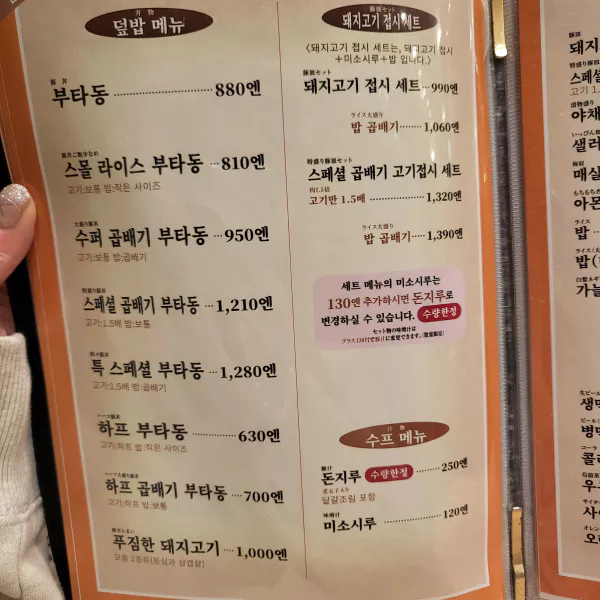 丼物
덮밥 메뉴
豚丼
부타동 880엔
豚丼ご飯少なめ
스몰 라이스 부타동 810엔
고기:보통 밥:작은 사이즈
大盛り豚丼
수퍼 곱배기 부타동 950엔
고기:보통 밥:곱배기
特盛り豚丼
스페셜 곱배기 부타동 1,210엔
고기:1.5배 밥:보통
특 스페셜 부타동 1,280엔
고기:1.5배 밥:곱배기
ハーフ豚丼
하프 부타동 630엔
고기:하프 밥:작은 사이즈
ハーフ大盛り豚丼
하프 곱배기 부타동 700엔
고기:하프 밥:보통
푸짐한 돼지고기 1,000엔
모듬 2종류(등심과 삼겹살)
豚皿セット
돼지고기 접시 세트
〈돼지고기 접시 세트는, 돼지고기 접시
+미소시루+밥 입니다.〉
豚皿セット
돼지고기 접시 세트 990엔
ライス大盛り
밥 곱배기 1,060엔
特盛り豚皿セット
스페셜 곱배기 고기접시 세트
肉1.5倍
고기만 1.5배 1,320엔
ライス大盛り
밥 곱배기 1,390엔
세트 메뉴의 미소시루는
130엔 추가하시면 돈지루로
변경하실 수 있습니다. 수량한정
セット物の味噌汁は
プラス130円で豚汁に変更できます。(数量限定)
汁物
수프 메뉴
豚汁
돈지루 수량한정 250엔
煮玉子入り
달걀조림 포함
味噌汁
미소시루 120엔
豚皿
돼지
特盛り豚皿
스페셜
고기 1
야채
샐러
매실
아몬
ライス
밥
밥(
가늘
생맥
병맥
コーラ
콜라
우
사이
오